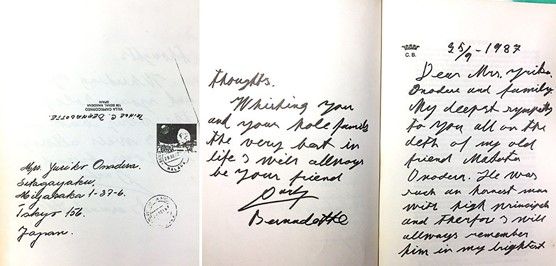 VILLA CAPRICORNIO
SPAIN
Mrs. Yuriko Onodera.
Setagayaku,
Miyasaka 1-37-6.
Tokyo 156.
Japan.
thoughts.
Whishing you
and your hole familie
the very best in
life I will allways
be your friend
Bernadotte
C.B.
25/9-1987
Dear Mrs. Yuriko
Onodera and family.
My deepest sympathy
to you all on the
deth of my old
friend Makoto
Onodera. He was
such an honest man
with high principels
and therfore I will
allways remember
him in my brightest